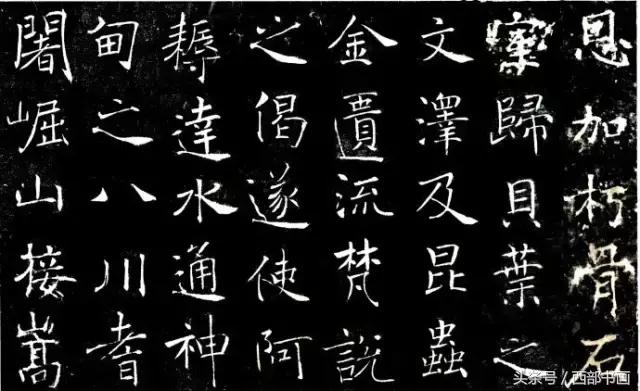 恩加朽骨石
室歸貝葉之
文澤及昆蟲
金匱流梵說
之偈遂使阿
耨達水通神
甸之八川耆
闍崛山接嵩
头条号 / 西部书画